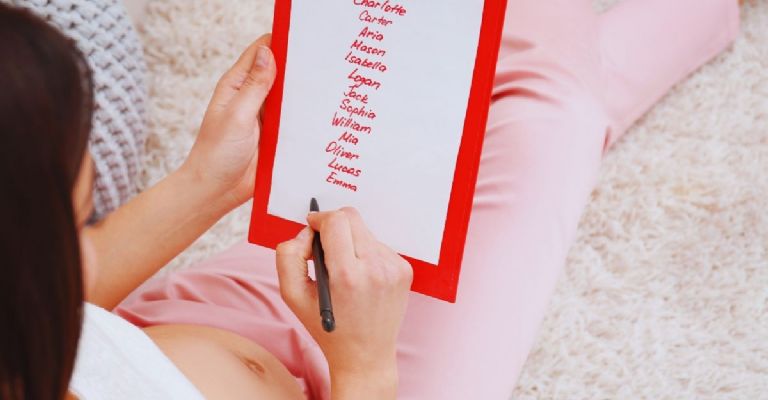 Charlotte
Carter
Aria
Mason
Isabella
Logan
Jack
Sophia
William
Mia
Oliver
Lucas
Emma